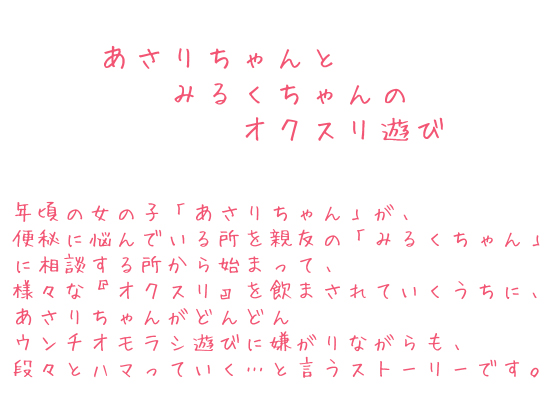 あさりちゃんと
みるくちゃんの
オクスリ遊び
年頃の女の子「あさりちゃん」が、
便秘に悩んでいる所を親友の「みるくちゃん」
に相談する所から始まって、
様々な『オクスリ』を飲まされていくうちに、
あさりちゃんがどんどん
ウンチオモラシ遊びに嫌がりながらも、
段々とハマっていく…と言うストーリーです。